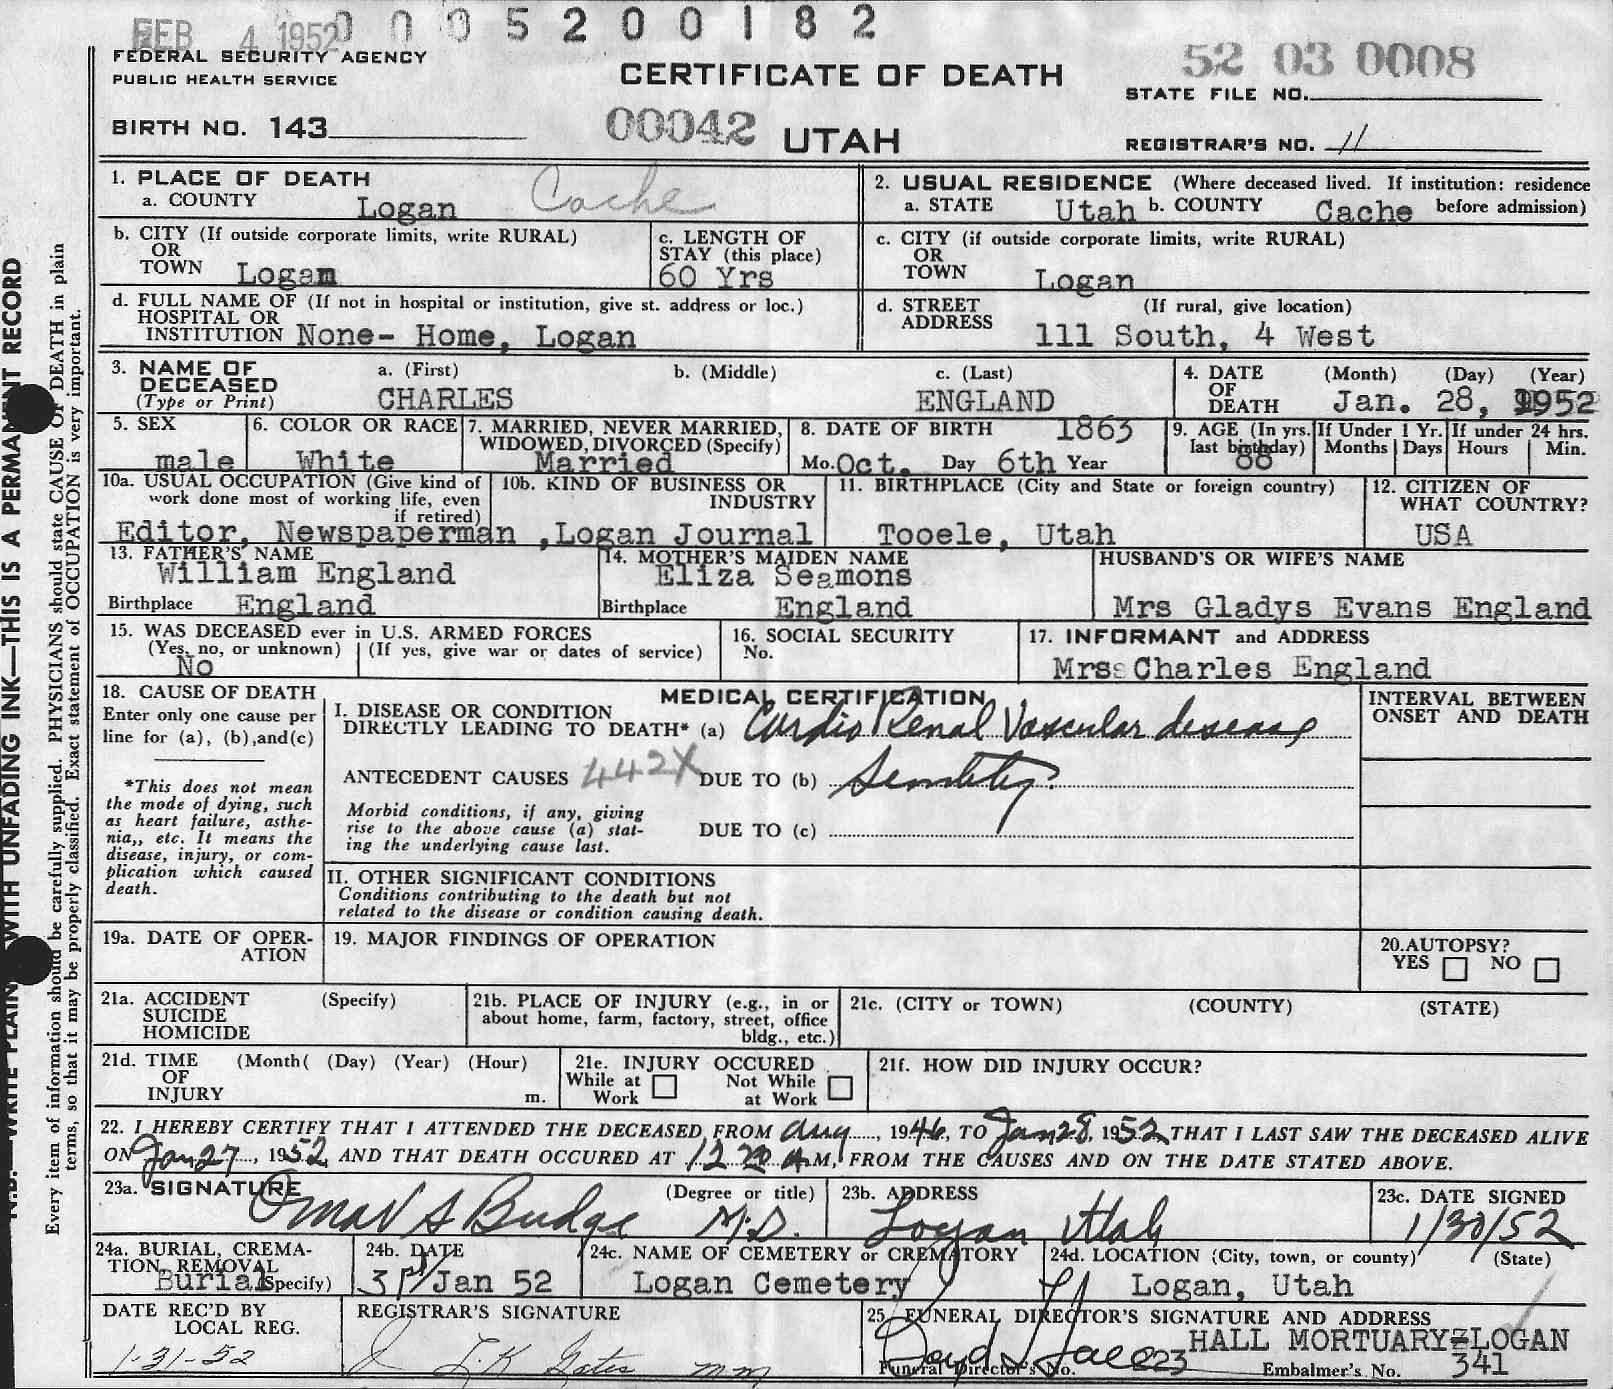 FEB 4 1952 0 0 0 5 2 0 0 1 8 2
FEDERAL SECURITY AGENCY
PUBLIC HEALTH SERVICE
CERTIFICATE OF DEATH
52 03 0008
STATE FILE NO.
BIRTH NO. 143
00042 UTAH
REGISTRAR'S NO. 11
1. PLACE OF DEATH
a. COUNTY Logan Cache
2. USUAL RESIDENCE (Where deceased lived. If institution: residence before admission)
a. STATE Utah b. COUNTY Cache
b. CITY (If outside corporate limits, write RURAL)
OR
TOWN Logan
c. LENGTH OF
STAY (this place)
60 Yrs
c. CITY (if outside corporate limits, write RURAL)
OR
TOWN Logan
d. FULL NAME OF (If not in hospital or institution, give st. address or loc.)
HOSPITAL OR
INSTITUTION None- Home, Logan
d. STREET (If rural, give location)
ADDRESS
111 South, 4 West
3. NAME OF
DECEASED
(Type or Print)
a. (First) b. (Middle) c. (Last)
CHARLES ENGLAND
4. DATE (Month) (Day) (Year)
OF
DEATH Jan. 28, 1952
5. SEX
male
6. COLOR OR RACE
White
7. MARRIED, NEVER MARRIED,
WIDOWED, DIVORCED (Specify)
Married
8. DATE OF BIRTH 1863
Mo. Oct. Day 6th Year
9. AGE (In yrs. last birthday)
88
If Under 1 Yr.
Months Days
If under 24 hrs.
Hours Min.
10a. USUAL OCCUPATION (Give kind of
work done most of working life, even
if retired)
Editor, Newspaperman
10b. KIND OF BUSINESS OR
INDUSTRY
,Logan Journal
11. BIRTHPLACE (City and State or foreign country)
Tooele, Utah
12. CITIZEN OF
WHAT COUNTRY?
USA
13. FATHER'S NAME
William England
Birthplace England
14. MOTHER'S MAIDEN NAME
Eliza Seamons
Birthplace England
HUSBAND'S OR WIFE'S NAME
Mrs Gladys Evans England
15. WAS DECEASED ever in U.S. ARMED FORCES
(Yes, no, or unknown) (If yes, give war or dates of service)
No
16. SOCIAL SECURITY
No.
17. INFORMANT and ADDRESS
Mrs Charles England
18. CAUSE OF DEATH
Enter only one cause per
line for (a), (b),and(c)
*This does not mean
the mode of dying, such
as heart failure, asthe-
nia,, etc. It means the
disease, injury, or com-
plication which caused
death.
MEDICAL CERTIFICATION
I. DISEASE OR CONDITION
DIRECTLY LEADING TO DEATH* (a) Cardio Renal Vascular disease
ANTECEDENT CAUSES 442X DUE TO (b)
Morbid conditions, if any, giving
rise to the above cause (a) stat-
ing the underlying cause last.
DUE TO (c)
II. OTHER SIGNIFICANT CONDITIONS
Conditions contributing to the death but not
related to the disease or condition causing death.
INTERVAL BETWEEN
ONSET AND DEATH
19a. DATE OF OPER-
ATION
19. MAJOR FINDINGS OF OPERATION
20.AUTOPSY?
YES NO
21a. ACCIDENT (Specify)
SUICIDE
HOMICIDE
21b. PLACE OF INJURY (e.g., in or
about home, farm, factory, street, office
bldg., etc.)
21c. (CITY or TOWN) (COUNTY) (STATE)
21d. TIME (Month( (Day) (Year) (Hour)
OF
INJURY m.
21e. INJURY OCCURED
While at Work Not While at Work
21f. HOW DID INJURY OCCUR?
22. I HEREBY CERTIFY THAT I ATTENDED THE DECEASED FROM Aug, 1946, TO Jan 28, 1952 THAT I LAST SAW THE DECEASED ALIVE
ON Jan 27, 1952, AND THAT DEATH OCCURED AT 12 20 A M, FROM THE CAUSES AND ON THE DATE STATED ABOVE.
23a. SIGNATURE (Degree or title)
Omar S Budge M.D.
23b. ADDRESS
Logan Utah
23c. DATE SIGNED
1/30/52
24a. BURIAL, CREMA-
TION, REMOVAL
Burial (Specify)
24b. DATE
31st Jan 52
24c. NAME OF CEMETERY or CREMATORY
Logan Cemetery
24d. LOCATION (City, town, or county) (State)
Logan, Utah
DATE REC'D BY
LOCAL REG.
1-31-52
REGISTRAR'S SIGNATURE
25. FUNERAL DIRECTOR'S SIGNATURE AND ADDRESS
HALL MORTUARY-LOGAN
Funeral Director's No. 223 Embalmer's No. 341
N.B.—WRITE PLAINLY WITH UNFADING INK—THIS IS A PERMANENT RECORD
Every item of information should be carefully supplied. PHYSICIANS should state CAUSE OF DEATH in plain
terms, so that it may be properly classified. Exact statement of OCCUPATION is very important.